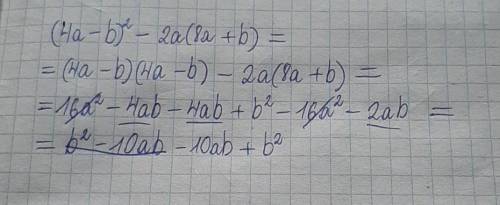 (4a-b)² - 2a(8a+b) =
= (4a-b)(4a-b) - 2a(8a+b) =
= 16a² - 4ab - 4ab + b² - 16a² - 2ab =
= b² - 10ab - 10ab + b²